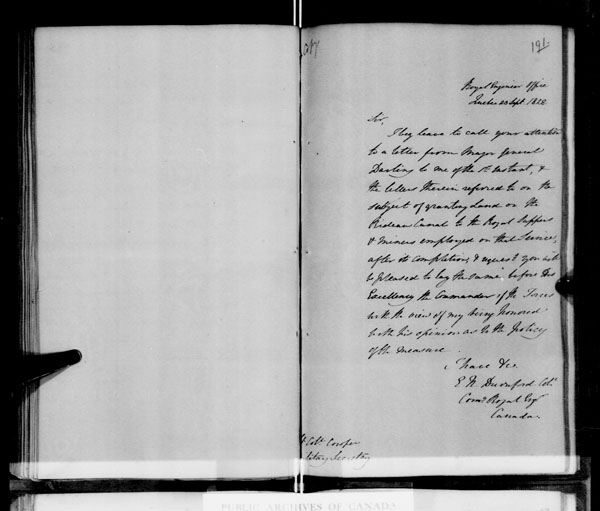 191.
Royal Engineer Office
Quebec 23 Sept. 1828
Sir,
I beg leave to call your attention
to a letter from Major General
Darling to me of the instant, &
the letters therein referred to on the
subject of granting Land on the
Rideau Canal to the Royal Sappers
& Miners employed on that Service,
after its completion, & request you will
be pleased to lay the same before His
Excellency the Commander of the Forces
with the view of my being honored
with his opinion as to the policy
of the measure.
I have &c.
E. W. Durnford Col.
Comg Royal Engrs
Canada
Coll. Couper
litary Secretary
PUBLIC ARCHIVES OF CANADA